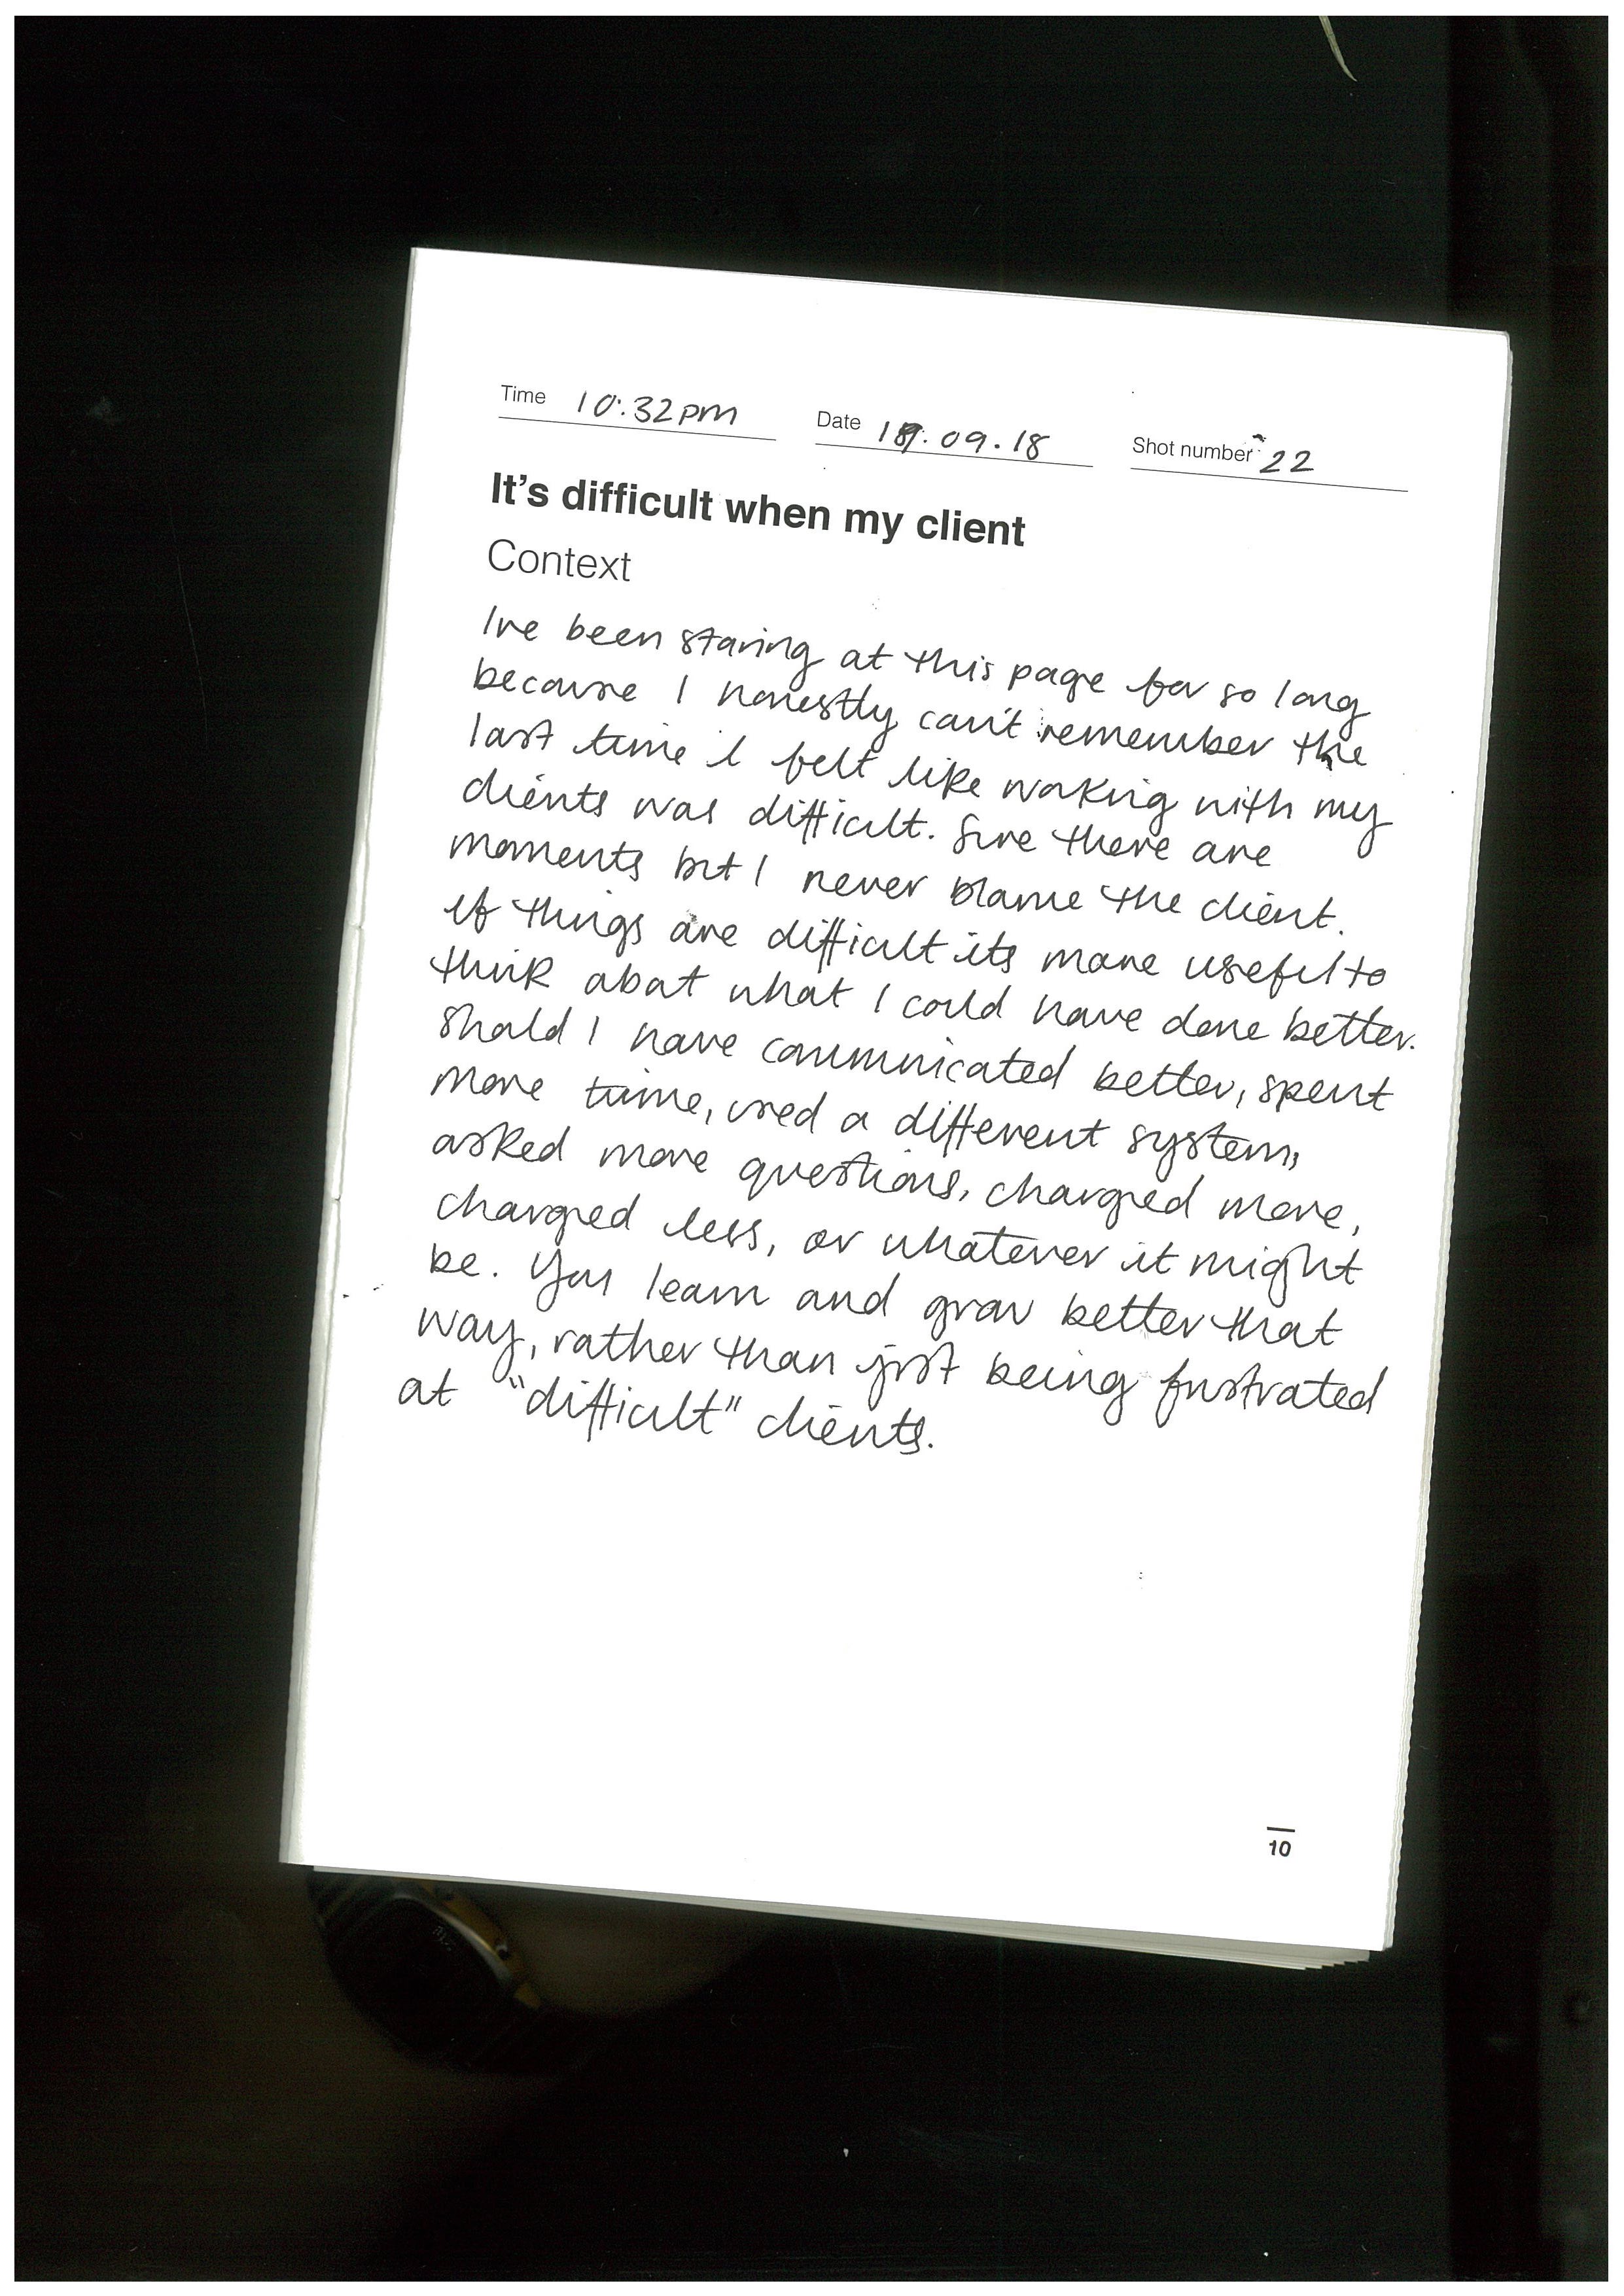 Time 10:32pm Date 19.09.18 Shot number 22
It's difficult when my client
Context
I've been staring at this page for so long
because I honestly can't remember the
last time I felt like working with my
clients was difficult. Sure there are
moments but I never blame the client.
If things are difficult its more useful to
think about what I could have done better.
Should I have communicated better, spent
more time, used a different system,
asked more questions, charged more,
charged less, or whatever it might
be. You learn and grow better that
way, rather than just being frustrated
at "difficult" clients.
10